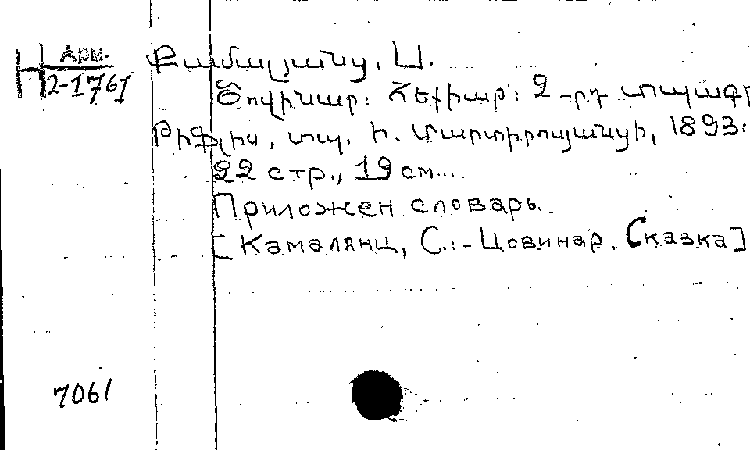 Арм.
Н 2-1761
Քամալյանց, Ս.
Ծովինար: Հեքիար: 2-րդ տպագր
Թիֆլիս, տպ. Ի. Մարտիրոսյանցի, 1893:
22 стр., 19 см...
Приложен словарь.
[Камалянц, С.:- Цовинар. Сказка]
7061